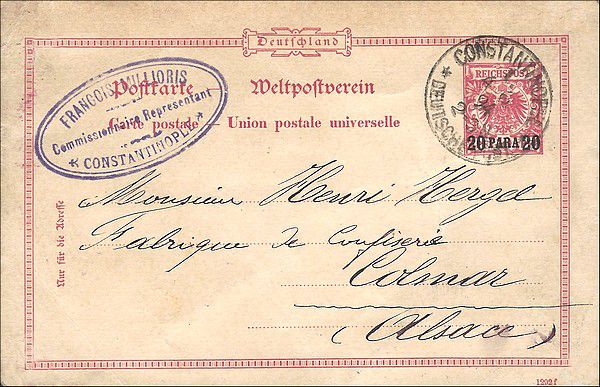 Deutschland
Postkarte Weltpostverein
Carte postale – Union postale universelle
FRANÇOIS MILLIORIS
Commissionaire Representant
* CONSTANTINOPLE *
CONSTANTINOPEL
REICHSPOST
20 PARA 20
Monsieur Henri Hergel
Fabrique de Confiserie
Colmar
(Alsace)
Nur für die Adresse
1292 f